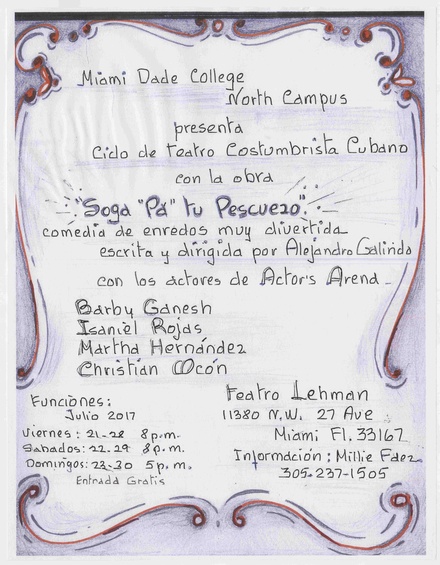 Miami Dade College
North Campus
presenta
Ciclo de Teatro Costumbrista Cubano
con la obra
"Soga "Pa" tu Pescuezo".
comedia de enredos muy divertida
escrita y dirigida por Alejandro Galindo
con los actores de Actor's Arena.
Barby Ganesh
Isaniel Rojas
Martha Hernández
Christian Ocón
Funciones:
Julio 2017
Viernes: 21-28 8p.m.
Sabados: 22-29 8p.m.
Domingos: 23-30 5p.m.
Entrada Gratis
Teatro Lehman
11380 N.W. 27 Ave
Miami Fl. 33167
Información: Millie Faez
305-237-1505